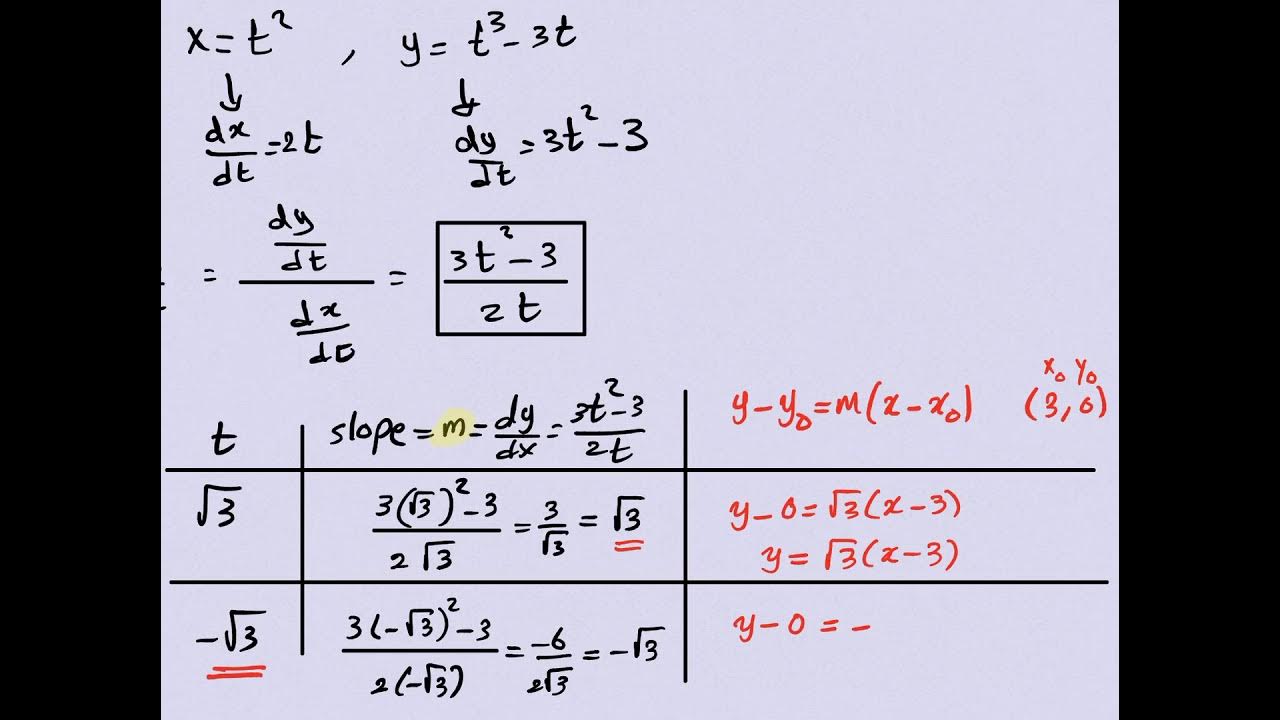 x = t² , y = t³ - 3t
↓ ↓
dx/dt = 2t dy/dt = 3t² - 3
= (dy/dt)/(dx/dt) = (3t² - 3)/(2t)
x₀ y₀
t slope = m = dy/dx = (3t² - 3)/(2t) y - y₀ = m(x - x₀) (3, 0)
√3 (3(√3)² - 3)/(2√3) = 3/√3 = √3 y - 0 = √3(x - 3)
y = √3(x - 3)
-√3 (3(-√3)² - 3)/(2(-√3)) = -6/(2√3) = -√3 y - 0 = -